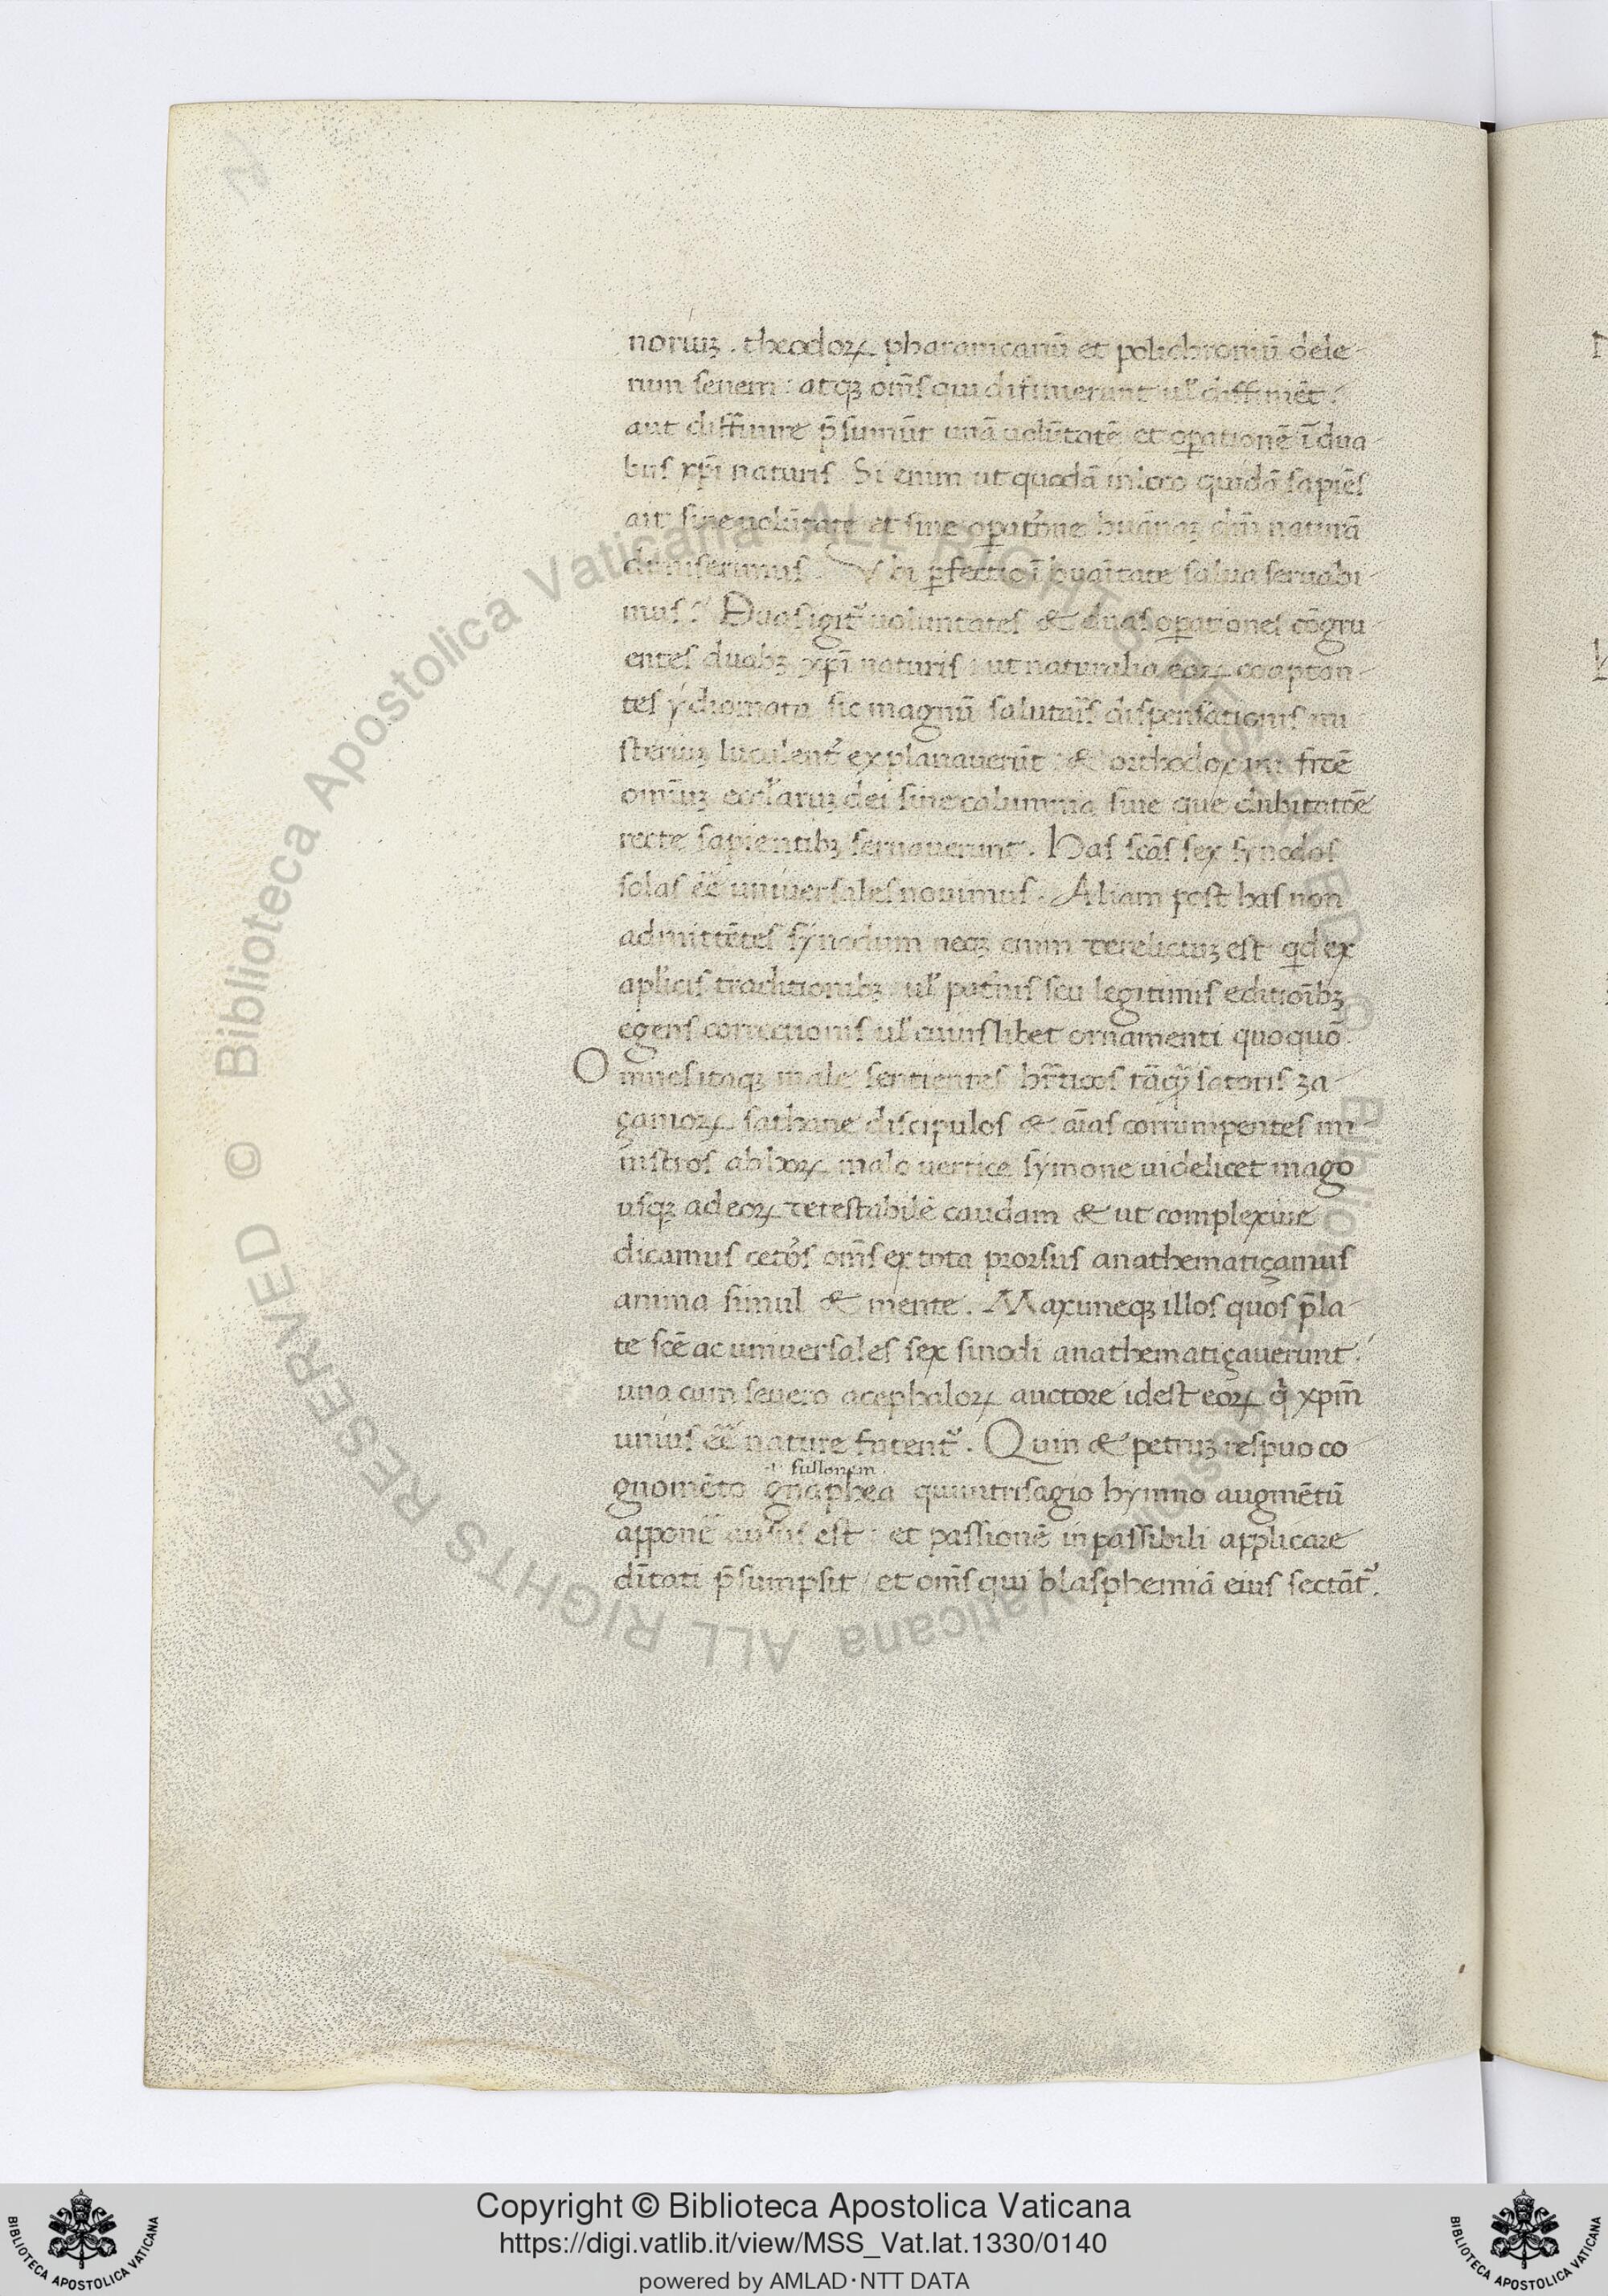 noriuꝫ . theodoꝝ pharanicanū et polichroniū dele-
rum senem : atqꝫ om̄s qui difinierunt ul̓ diffiniēt .
aut diffinire p̄sumūt unā volūtatē et oꝑationē ī dua-
bus xp̄i naturis . Si enim ut quodā in loco quidā sapiēs
ait sine volūtate et sine oꝑatōne huānaꝫ dn̄i naturā
dimiserimus . Ubi ꝑfectio ī huāītate salua seruabi-
mus ? Duas igit̓ voluntates & duas oꝑationes cōgru-
entes duabꝫ xp̄i naturis : ut naturalia eoꝝ coaptan-
tes ydiomata sic magnū salutaris dispensationis mi-
steriuꝫ luculent̓ explanaverūt : & orthodoxam frōtē
omīuꝫ eccl̓iaruꝫ dei sine calumnia sine que dubitatōe
recte sapientibꝫ servaverunt . Has sc̄as sex synodos
solas eē̄ universales novimus . Aliam post has non
admittētes synodum neqꝫ enim derelictuꝫ est qd ex
apl̓icis traditionibꝫ ul̓ pat̓nis seu legitimis editioībꝫ
egens correctionis ul̓ cuiuslibet ornamenti quoquō
Omnes itaqꝫ male sentientes hr̄ticos tāqꝫ satoris za-
çanioꝝ sathane discipulos & aīas corrumpentes mi-
nistros ab hoꝝ malo vertice symone videlicet mago
usqꝫ ad eoꝝ detestabilē caudam & ut complexive
dicamus cetōs om̄s ex tota prorsus anathematiçamus
anima simul & mente . Maximeqꝫ illos quos p̄la-
te sc̄e ac universales sex sinodi anathematiçaverunt .
una cum severo acephaloꝝ auctore idest eoꝝ q̓ xp̄m
unius eē̄ nature fatent̓ . Quin & petruꝫ respuo co-
.i. fullonem .
gnomēto gnaphea qui intrisagio hymno augmētū
apponē ausus est : et passionē inpassibili applicare
dītati p̄sumpsit / et om̄s qui blasphemiā eius sectāt̓ .
© Biblioteca Apostolica Vaticana ALL RIGHTS RESERVED © Biblioteca Apostolica Vaticana ALL RIGHTS RESERVED
Copyright © Biblioteca Apostolica Vaticana
https://digi.vatlib.it/view/MSS_Vat.lat.1330/0140
powered by AMLAD·NTT DATA
BIBLIOTECA APOSTOLICA VATICANA
BIBLIOTECA APOSTOLICA VATICANA